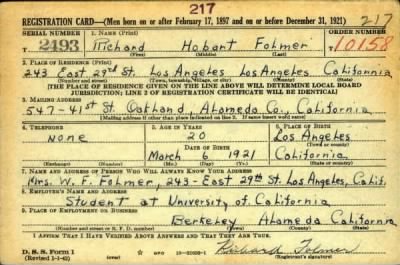 217
REGISTRATION CARD—(Men born on or after February 17, 1897 and on or before December 31, 1921) 217
SERIAL NUMBER 1. NAME (Print) ORDER NUMBER
T 2493 Richard Hobart Folmer T 10158
(First) (Middle) (Last)
2. PLACE OF RESIDENCE (Print)
243 East 29th St. Los Angeles Los Angeles California
(Number and street) (Town, township, village, or city) (County) (State)
[THE PLACE OF RESIDENCE GIVEN ON THE LINE ABOVE WILL DETERMINE LOCAL BOARD
JURISDICTION; LINE 2 OF REGISTRATION CERTIFICATE WILL BE IDENTICAL]
3. MAILING ADDRESS
547-41st St. Oakland, Alameda Co., California
[Mailing address if other than place indicated on line 2. If same insert word same]
4. TELEPHONE 5. AGE IN YEARS 6. PLACE OF BIRTH
None 20 Los Angeles
DATE OF BIRTH (Town or county)
March 6 1921 California
(Exchange) (Number) (Mo.) (Day) (Yr.) (State or country)
7. NAME AND ADDRESS OF PERSON WHO WILL ALWAYS KNOW YOUR ADDRESS
Mrs. W. F. Folmer, 243-East 29th St. Los Angeles, Calif.
8. EMPLOYER'S NAME AND ADDRESS
Student at University of California
9. PLACE OF EMPLOYMENT OR BUSINESS
Berkeley Alameda California
(Number and street or R. F. D. number) (Town) (County) (State)
I AFFIRM THAT I HAVE VERIFIED ABOVE ANSWERS AND THAT THEY ARE TRUE.
D. S. S. Form 1 Richard Folmer
(Revised 1-1-42) GPO (Registrant's signature)